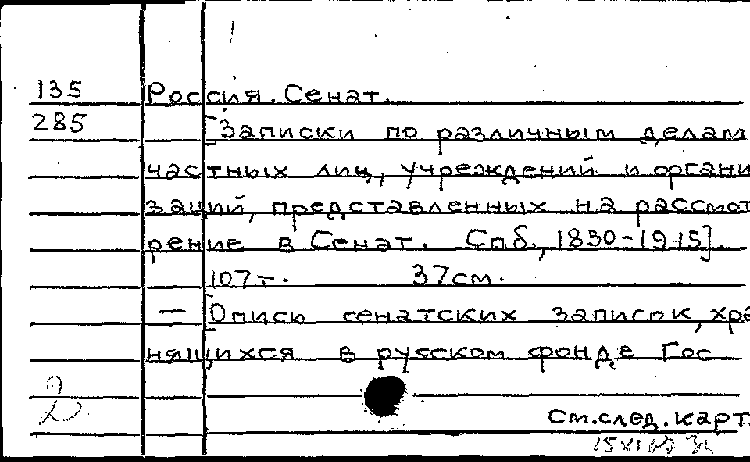 135 Россия. Сенат.
285 [Записки по различным делам
частных лиц, учреждений и органи
заций, представленных на рассмот
рение в Сенат. Спб., 1830-1915].
107 т. 37 см.
— [Опись сенатских записок, хра
нящихся в русском фонде Гос
см. след. карт.